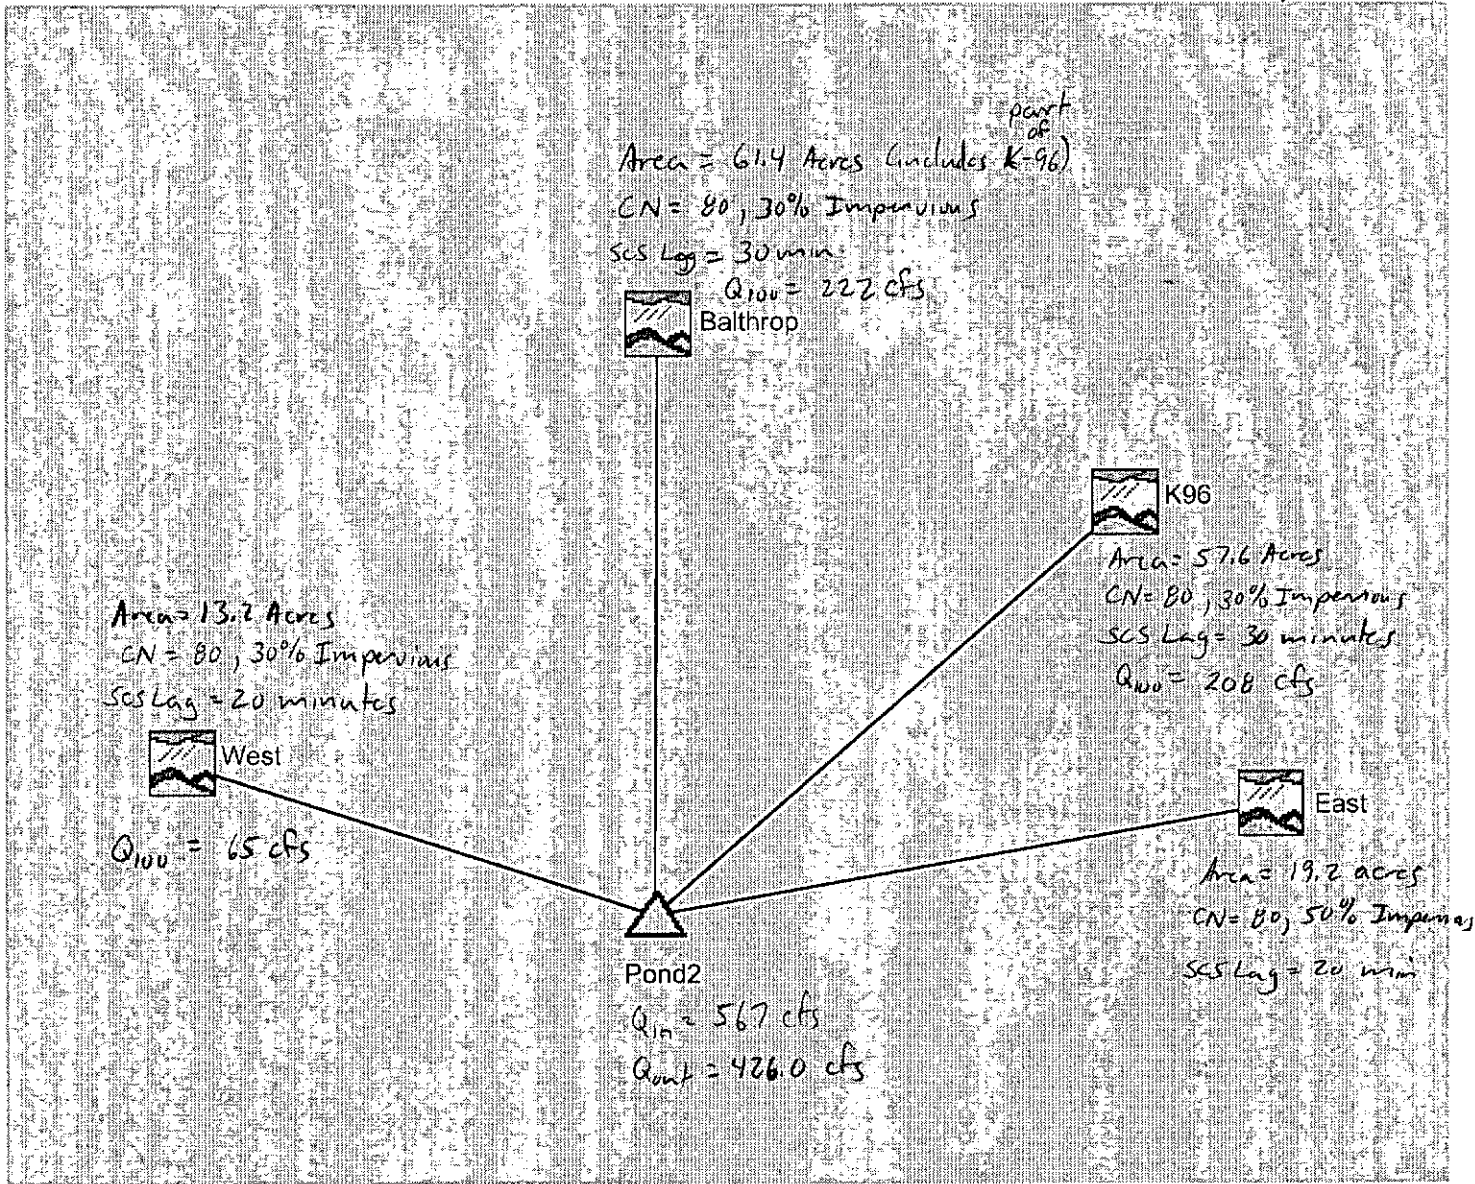 part
of
Area = 61.4 Acres (includes K-96)
CN = 80, 30% Impervious
SCS Lag = 30 min
Q100 = 222 cfs
Balthrop
K96
Area = 57.6 Acres
CN = 80, 30% Impervious
SCS Lag = 30 minutes
Q100 = 208 cfs
Area = 13.2 Acres
CN = 80, 30% Impervious
SCS Lag = 20 minutes
West
Q100 = 65 cfs
East
Area = 19.2 acres
CN = 80, 50% Impervious
SCS Lag = 20 min
Pond2
Qin = 567 cfs
Qout = 426.0 cfs